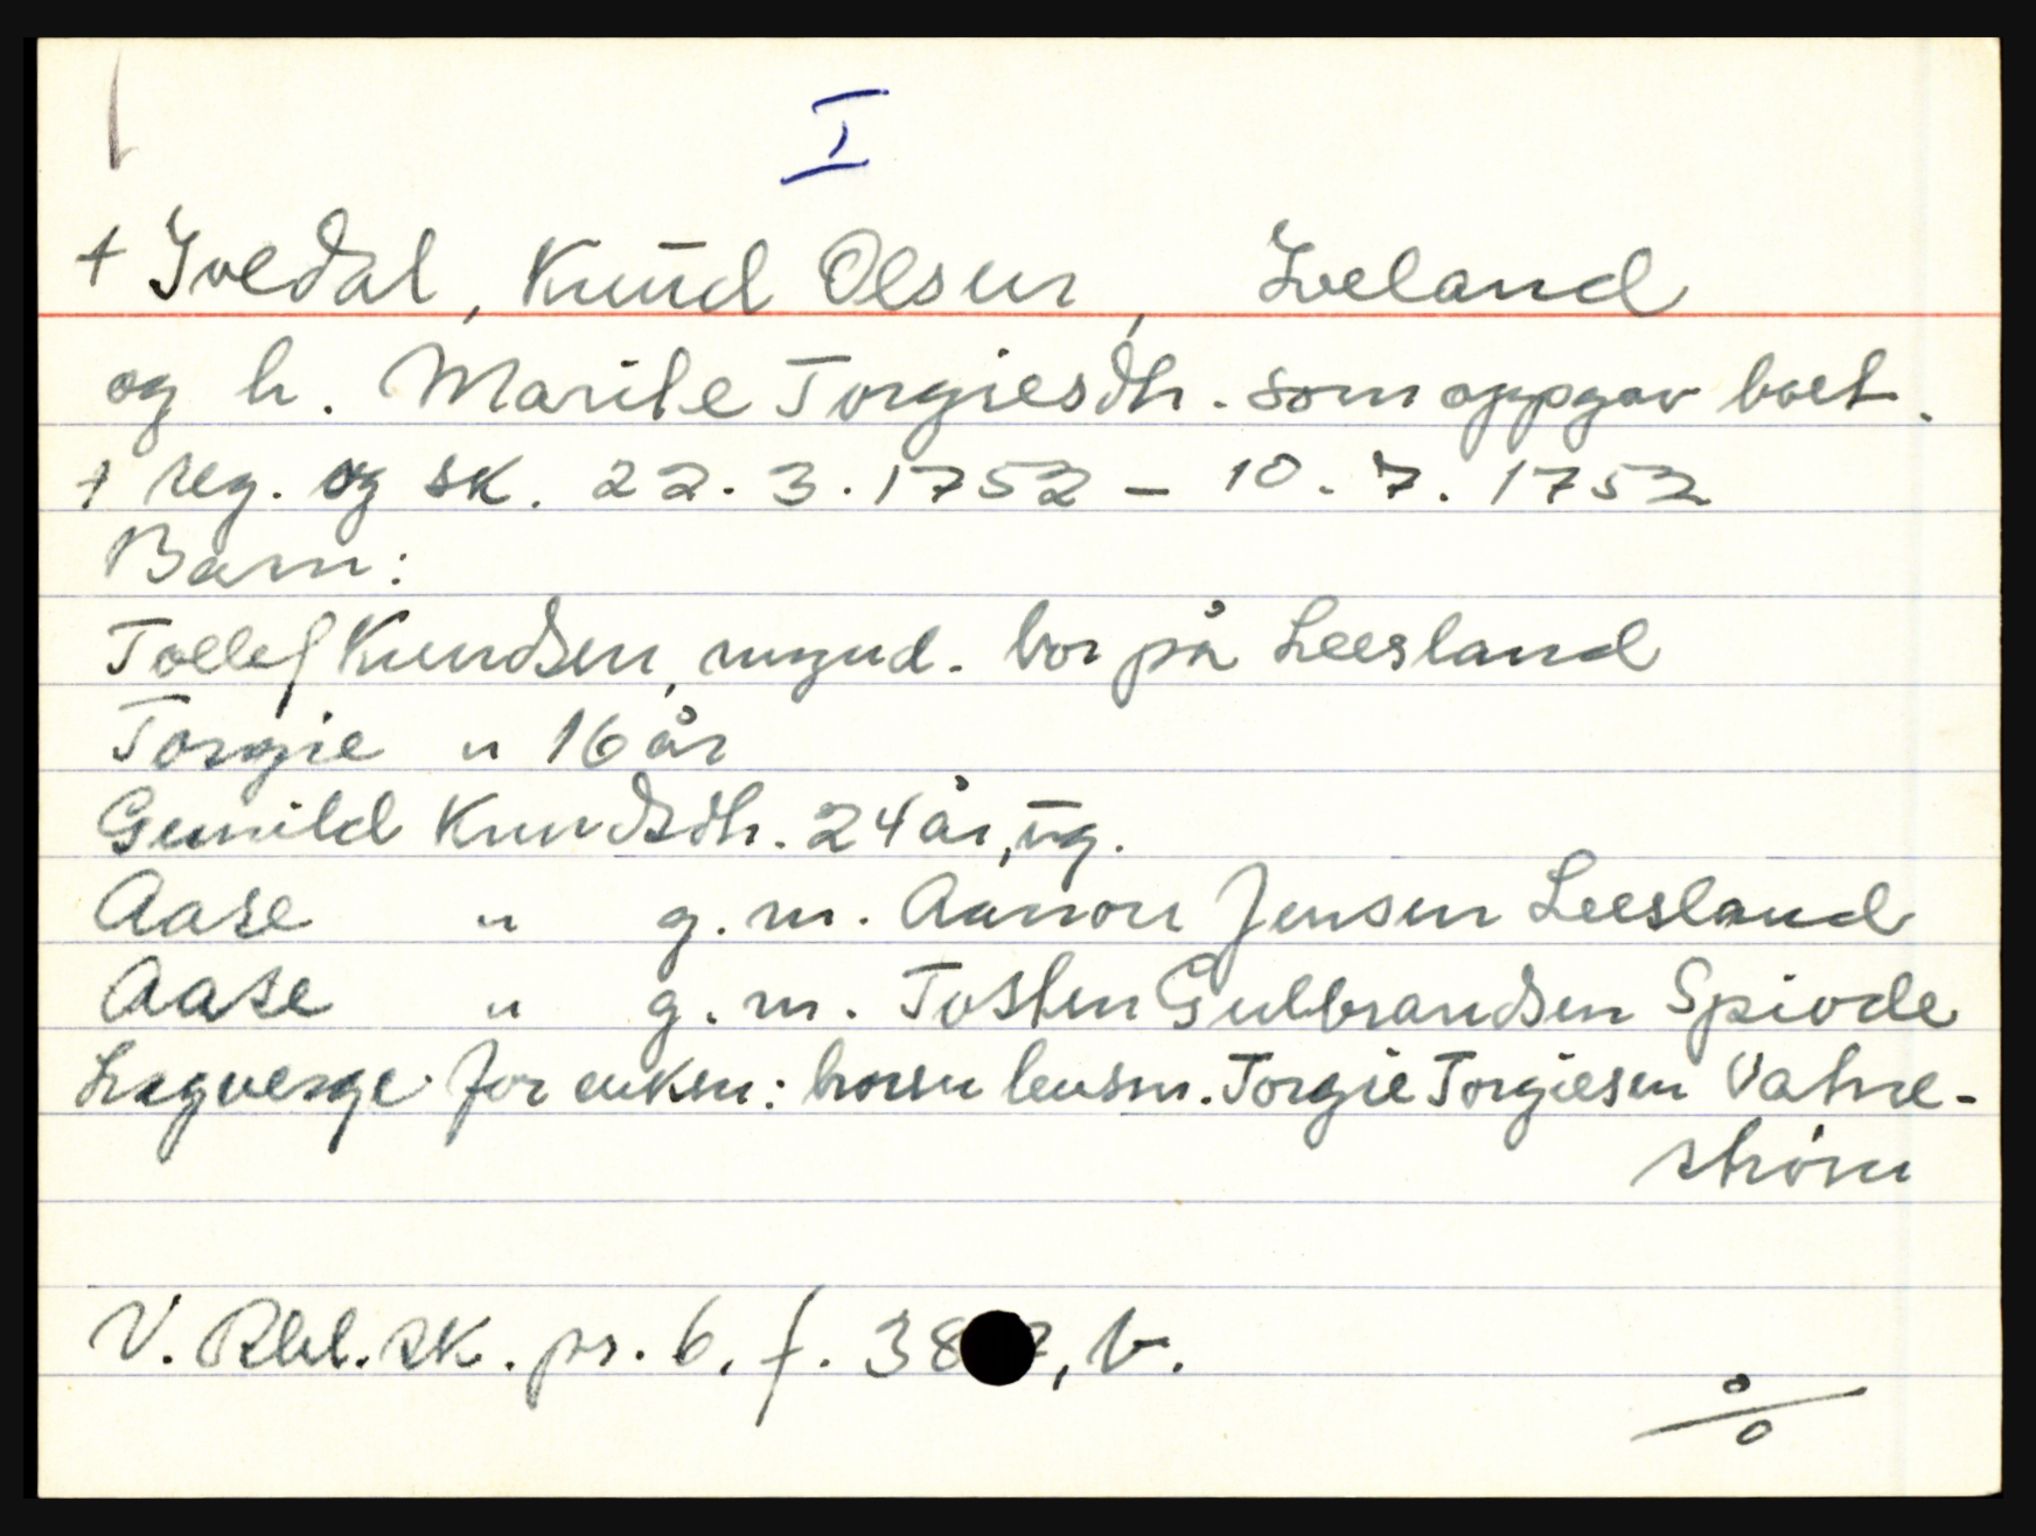 I
+ Ivedal, Knud Olsen, Iveland
og h. Marite Torgiesdtr. som oppgav boet.
+ reg. og sk. 22.3.1752 – 10.7.1752
Barn:
Tollef Knudsen, mynd. bor på Leesland
Torgie " 16 år
Gunild Knudsdtr. 24 år, ug.
Aase " g.m. Aanon Jensen Leesland
Aase " g.m. Tosten Gulbrandsen Spiode
Lagverge for enken: broren lensm. Torgie Torgiesen Vatne-
strøm
V. Rbl. sk. pr. 6. f. 387, b.